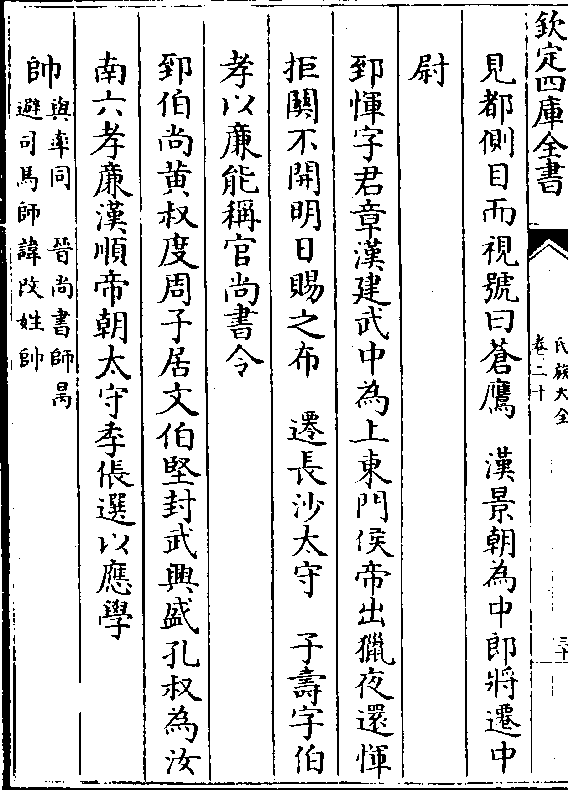 欽定四庫全書
氏族大全
卷二十
見都側目而視號曰蒼鷹　漢景朝為中郎將遷中
尉
郅惲字君章漢建武中為上東門侯帝出獵夜還惲
拒關不開明日賜之布　遷長沙太守　子壽字伯
孝以廉能稱官尚書令
郅伯尚黄叔度周子居文伯堅封武興盛孔叔為汝
南六孝廉漢順帝朝太守李倀選以應學
帥與率同　晉尚書師昺
避司馬師諱改姓帥